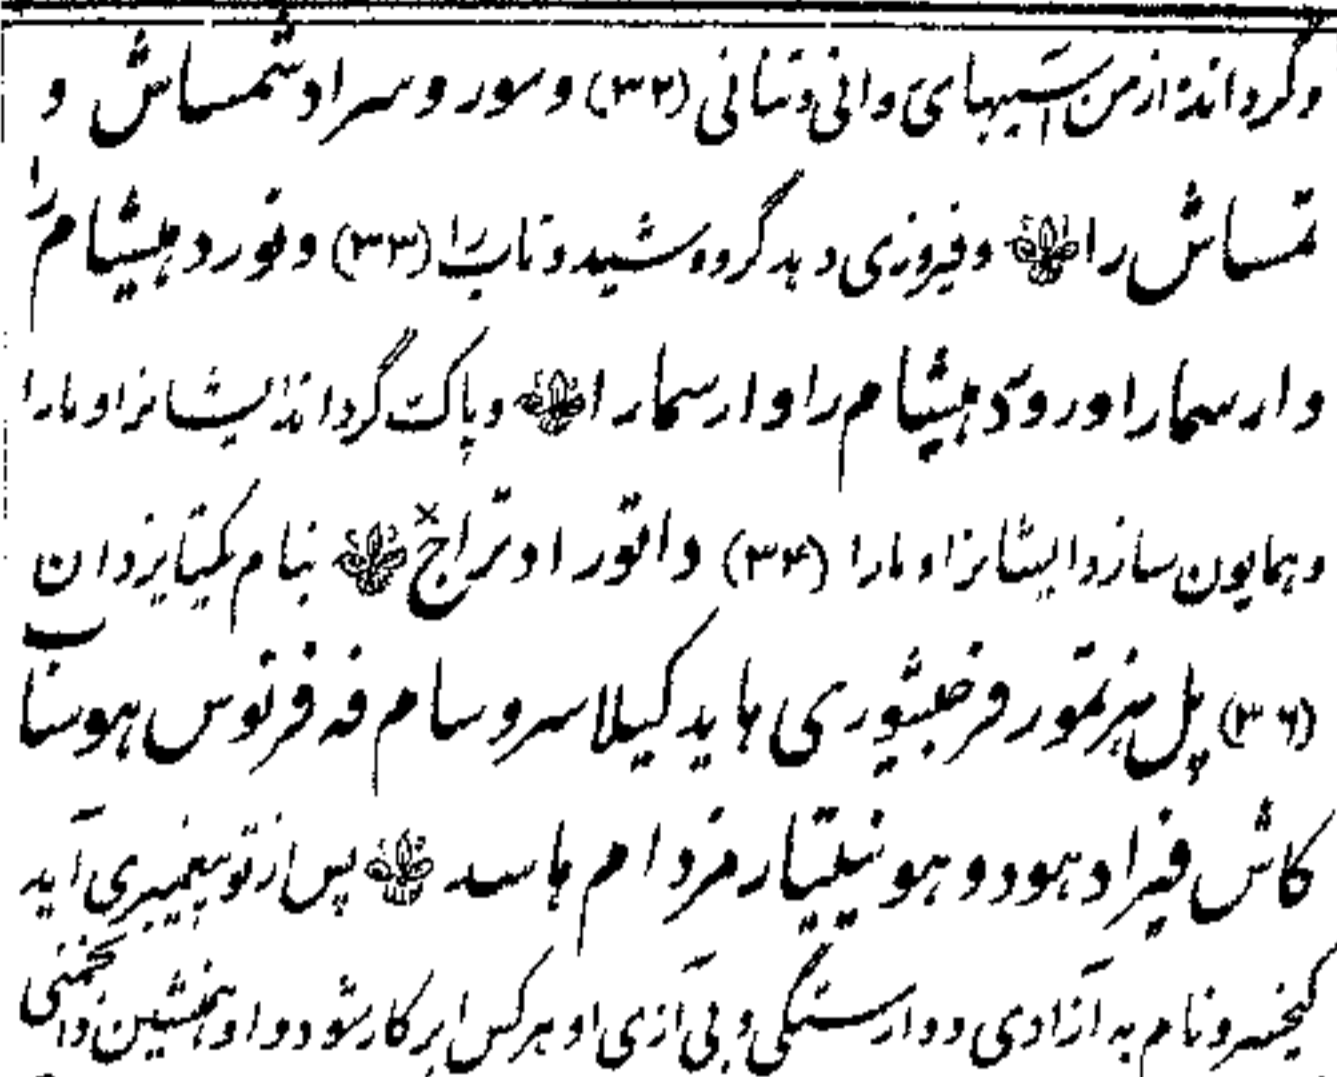 وگرداند از من آسیبهای روانی و تنانی (۳۲) و سور و سراد شمساش و
تمساش را و فیروزی دهد گروه شید و تاب را (۳۳) و نورد هیشام را
و ارسمار اورود هیشام را و ارسمار ا و پاک گرداند ایشانرا و مارا
و همایون سازد ایشانرا و مارا (۳۴) دانور اد نراخ بنام یکتا یزدان
(۳۶) پل هنر تمور فرجیشوری هاید کیلاسروسام فه فرنوس هوسناب
کاش فیراد هود و هو نیتیار مزدام هاسد پس از تو پیغمبری آید
کیخسرو نام به آزادی و وارستگی و بی آزی او هر کس ابر کار شود و او همنشین